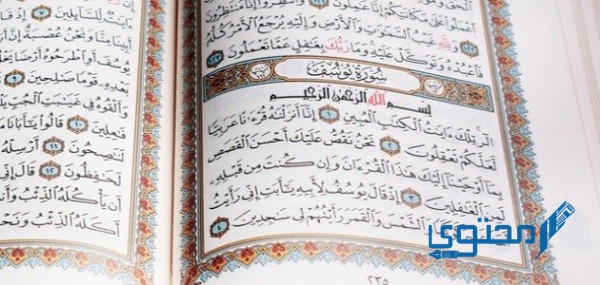 ٱعْمَلُوا۟ عَلَىٰ مَكَانَتِكُمْ إِنَّا عَٰمِلُونَ ١٢١ وَٱنتَظِرُوٓا۟ إِنَّا مُنتَظِرُونَ
١٢٢ وَلِلَّهِ غَيْبُ ٱلسَّمَٰوَٰتِ وَٱلْأَرْضِ وَإِلَيْهِ يُرْجَعُ ٱلْأَمْرُ كُلُّهُۥ
فَٱعْبُدْهُ وَتَوَكَّلْ عَلَيْهِ وَمَا رَبُّكَ بِغَٰفِلٍ عَمَّا تَعْمَلُونَ ١٢٣
سُورَةُ يُوسُفَ
بِسْمِ ٱللَّهِ ٱلرَّحْمَٰنِ ٱلرَّحِيمِ
الٓر تِلْكَ ءَايَٰتُ ٱلْكِتَٰبِ ٱلْمُبِينِ ١ إِنَّآ أَنزَلْنَٰهُ قُرْءَٰنًا عَرَبِيًّا
لَّعَلَّكُمْ تَعْقِلُونَ ٢ نَحْنُ نَقُصُّ عَلَيْكَ أَحْسَنَ ٱلْقَصَصِ
بِمَآ أَوْحَيْنَآ إِلَيْكَ هَٰذَا ٱلْقُرْءَانَ وَإِن كُنتَ مِن قَبْلِهِۦ
لَمِنَ ٱلْغَٰفِلِينَ ٣ إِذْ قَالَ يُوسُفُ لِأَبِيهِ يَٰٓأَبَتِ إِنِّى رَأَيْتُ
وَٱلشَّمْسَ وَٱلْقَمَرَ رَأَيْتُهُمْ لِى سَٰجِدِينَ ٤
٢٣٥
ءَايَٰتٌ لِّلسَّآئِلِينَ ٧ إِذْ
أَبِينَا مِنَّا وَنَحْنُ عُصْبَةٌ إِنَّ
يُوسُفَ أَوِ ٱطْرَحُوهُ أَرْضًا
بَعْدِهِۦ قَوْمًا صَٰلِحِينَ ٩
وَأَلْقُوهُ فِى غَيَٰبَتِ ٱلْجُبِّ
فَٰعِلِينَ ١٠ قَالُوا۟ يَٰٓأَبَانَا مَا
لَنَٰصِحُونَ ١١ أَرْسِلْهُ
لَحَٰفِظُونَ ١٢ قَالَ إِنِّى
أَن يَأْكُلَهُ ٱلذِّئْبُ
أَكَلَهُ ٱلذِّئْبُ وَنَحْنُ
محتوى